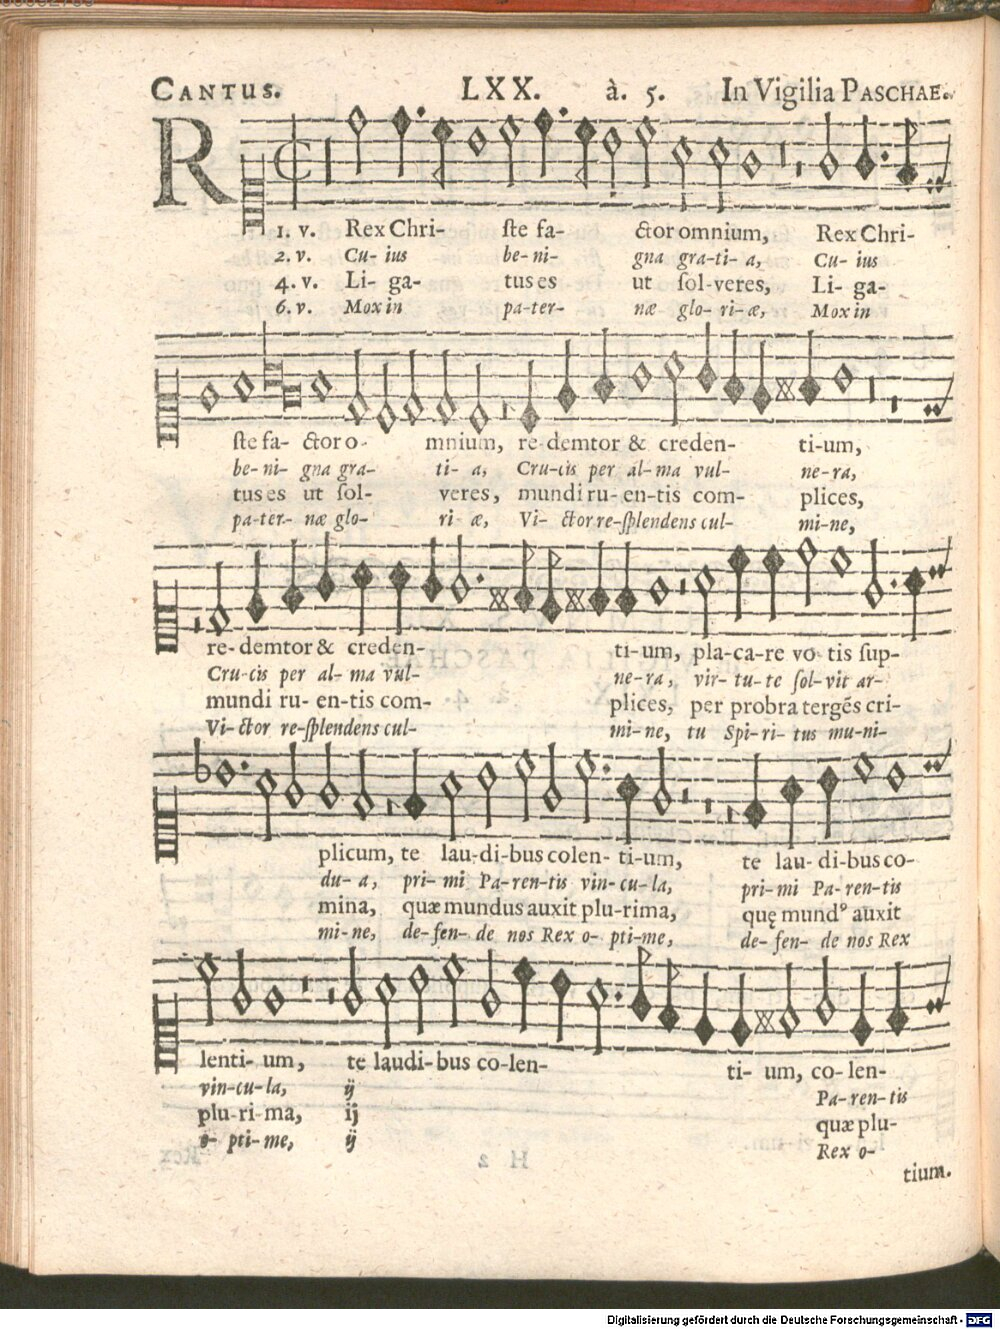 CANTUS. LXX. à. 5. In Vigilia PASCHAE.
R
1. v. Rex Chri- ste fa- ctor omnium, Rex Chri-
2. v. Cu- ius be- ni- gna gra- ti- a, Cu- ius
4. v. Li- ga- tus es ut sol- veres, Li- ga-
6. v. Mox in pa- ter- næ glo- ri- æ, Mox in
ste fa- ctor o- mnium, re- demtor & creden- ti-um,
be- ni- gna gra- ti- a, Cru- cis per al- ma vul- ne- ra,
tus es ut sol- veres, mundi ru- en-tis com- plices,
pa-ter- næ glo- ri æ, Vi- ctor re-splendens cul- mi-ne,
re- demtor & creden- ti-um, pla-ca-re vo- tis sup-
Cru-cis per al- ma vul- ne-ra, vir- tu-te sol-vit ar-
mundi ru- en-tis com- plices, per probra tergẽs cri-
Vi- ctor re-splendens cul- mi-ne, tu Spi- ri- tus mu-ni-
plicum, te lau-di-bus colen- ti-um, te lau- di-bus co-
du- a, pri- mi Pa- ren-tis vin- cu- la, pri- mi Pa- ren-tis
mina, quæ mundus auxit plu-rima, quę mundꝰ auxit
mi-ne, de- fen- de nos Rex o- pti-me, de- fen- de nos Rex
lenti- um, te laudi-bus co-len- ti- um, co- len-
vin-cu-la, ij Pa-ren-tis
plu-ri-ma, ij quæ plu-
o- pti-me, ij Rex o-
tium.
Digitalisierung gefördert durch die Deutsche Forschungsgemeinschaft - DFG